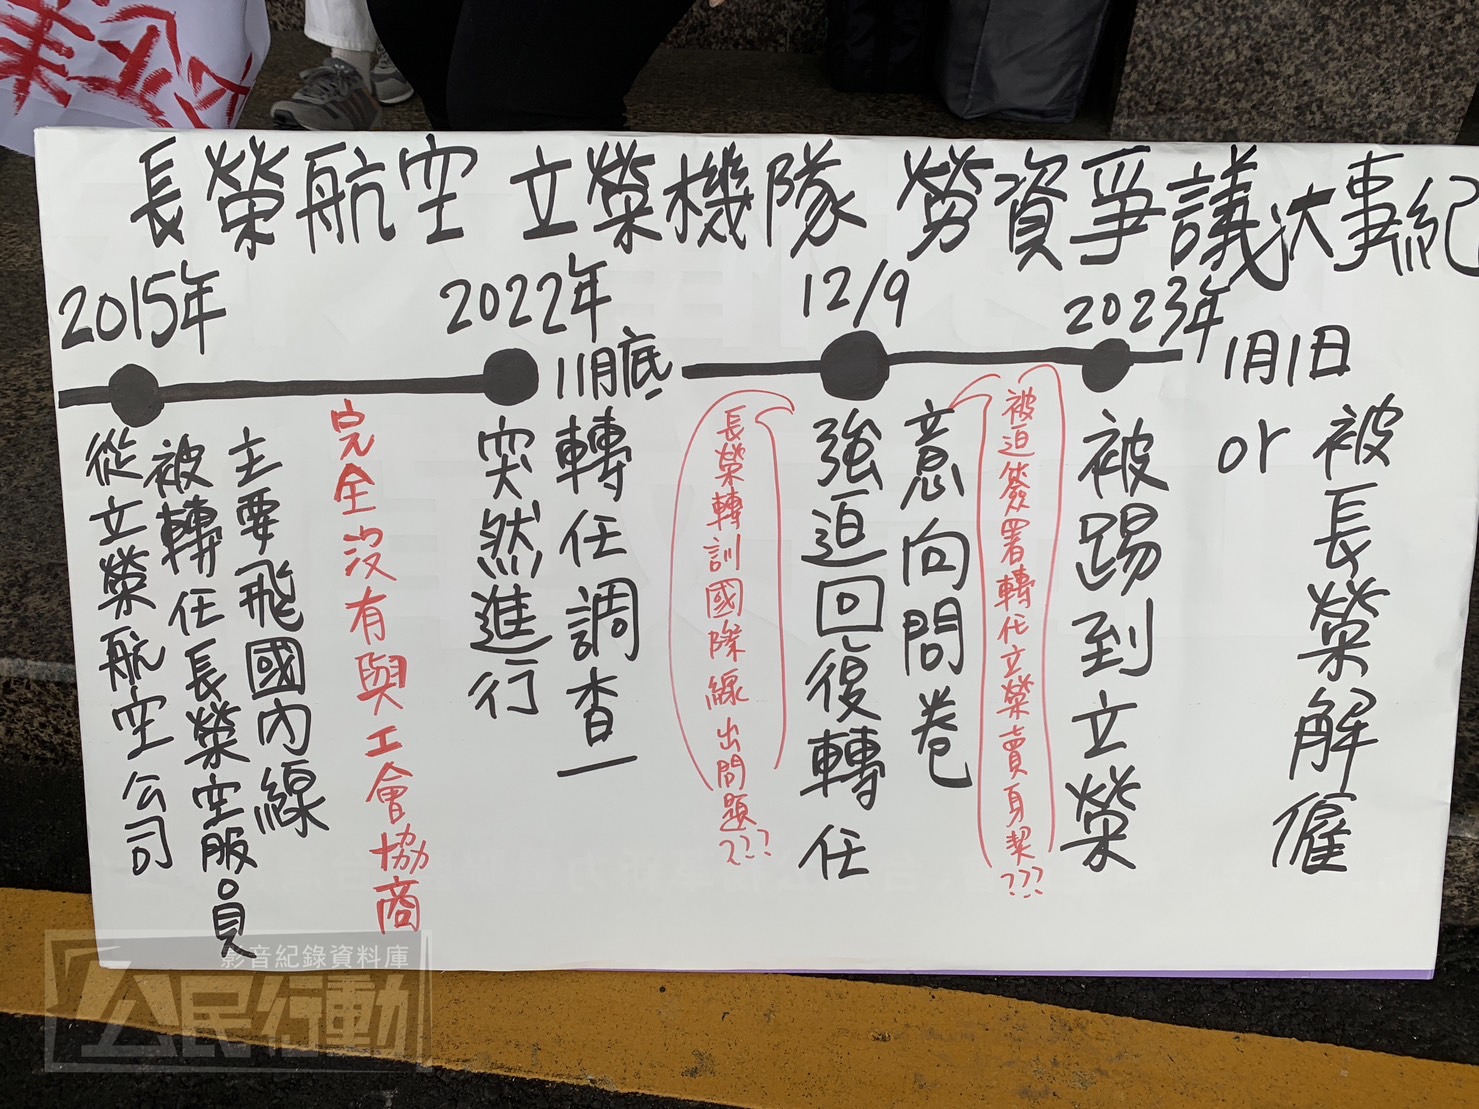 長榮航空 立榮機隊 勞資爭議大事紀
2015年
從立榮航空公司
被轉任長榮空服員
主要飛國內線
完全沒有與工會協商
2022年
11月底
突然進行
轉任調查
長榮轉訓國際線出問題???
12/9
強迫回復轉任
意向問卷
被迫簽署轉任立榮賣身契???
2023年
1月1日
被踢到立榮
or
被長榮解僱
影音紀錄資料庫
公民行動